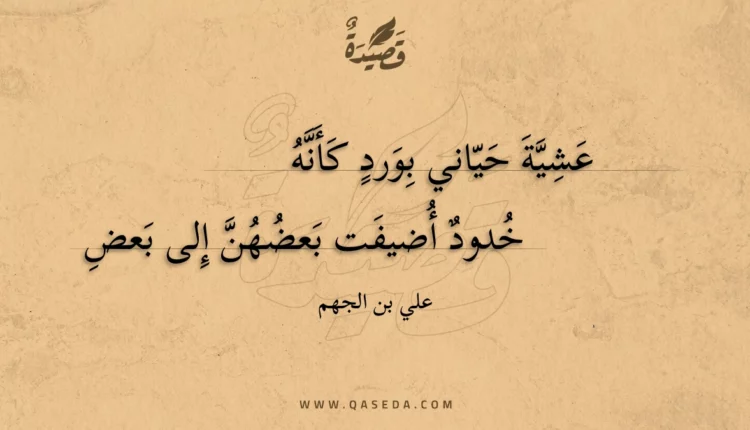 قَصِيْدَةٌ
عَشِيَّةَ حَيّاني بِوَردٍ كَأَنَّهُ
خُدودٌ أُضيفَت بَعضُهُنَّ إِلى بَعضِ
علي بن الجهم
WWW.QASEDA.COM